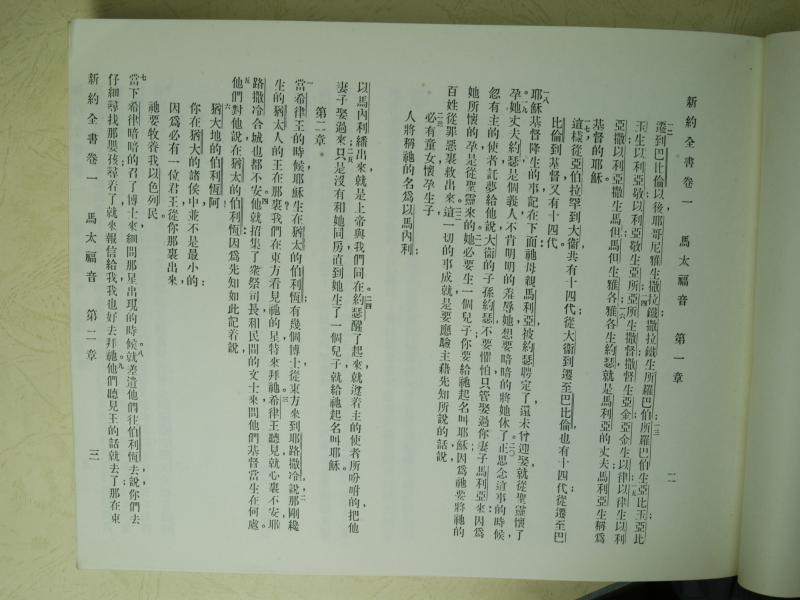 新約全書卷一　馬太福音　第一章　二
一二遷到巴比倫以後耶哥尼雅生撒拉鐵撒拉鐵生所羅巴伯一三所羅巴伯生亞比玉亞比
玉生以利亞敬以利亞敬生亞所一四亞所生撒督撒督生亞金亞金生以律一五以律生以利
亞撒以利亞撒生馬但馬但生雅各一六雅各生約瑟就是馬利亞的丈夫馬利亞生稱爲
基督的耶穌。
一七這樣從亞伯拉罕到大衞共有十四代從大衞到遷至巴比倫也有十四代從遷至巴
比倫到基督又有十四代。
一八耶穌基督降生的事記在下面祂母親馬利亞被約瑟聘定了還未曾迎娶就從聖靈懷了
孕一九她丈夫約瑟是個義人不肯明明的羞辱她想要暗暗的將她休了二〇正思念這事的時候
忽有主的使者託夢給他說大衞的子孫約瑟不要懼怕只管娶過你妻子馬利亞來因爲
她所懷的孕是從聖靈來的二一她必要生一個兒子你要給祂起名叫耶穌因爲祂要將祂的
百姓從罪惡裏救出來二二這一切的事成就是要應驗主藉先知所說的話說
二三必有童女懷孕生子
人將稱祂的名爲以馬內利
以馬內利繙出來就是上帝與我們同在二四約瑟醒了起來就遵着主的使者所吩咐的把他
妻子娶過來二五只是沒有和她同房直到她生了一個兒子就給祂起名叫耶穌。
第二章
一當希律王的時候耶穌生在猶太的伯利恆有幾個博士從東方來到耶路撒冷說二那剛纔
生的猶太人的王在那裏?我們在東方看見祂的星特來拜祂三希律王聽見就心裏不安耶
路撒冷合城也都不安四他就招集了衆祭司長和民間的文士來問他們基督當生在何處
五他們對他說在猶太的伯利恆因爲先知如此記着說
六猶大地的伯利恆阿
你在猶大的諸侯中並不是最小的
因爲必有一位君王從你那裏出來
祂要牧養我以色列民
七當下希律暗暗的召了博士來細問那星出現的時候八就差遣他們往伯利恆去說你們去
仔細尋找那嬰孩尋着了就來報信給我我也好去拜祂九他們聽見王的話就去了那在東
新約全書卷一　馬太福音　第二章　三